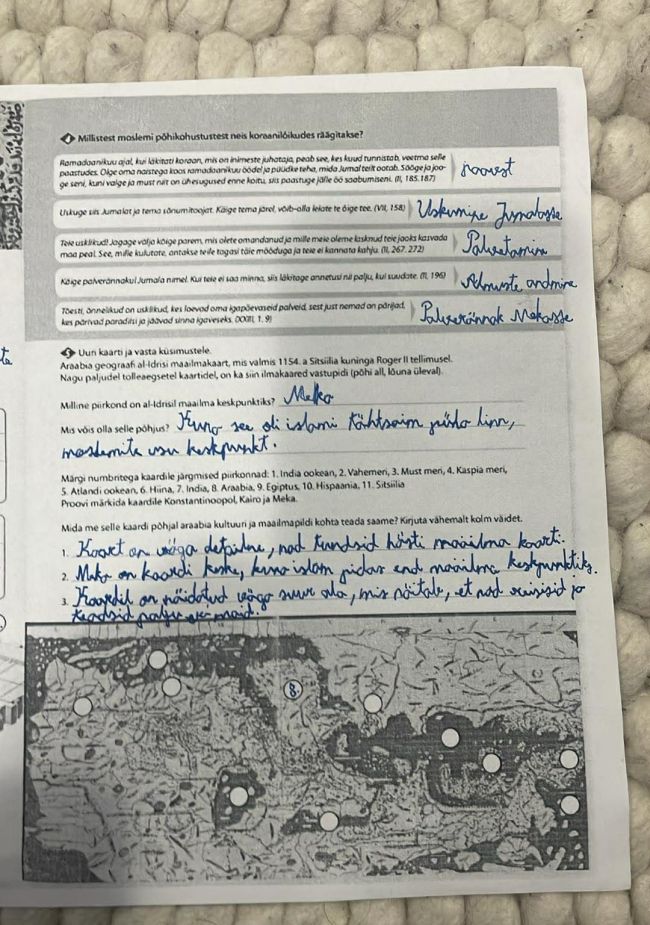 4 Millistest moslemi põhikohustustest neis koraanilõikudes räägitakse?
Ramadaanikuu ajal, kui läkitati koraan, mis on inimeste juhataja, peab see, kes kuud tunnistab, veetma selle
paastudes. Olge oma naistega koos ramadaanikuu öödel ja püüdke teha, mida Jumal teilt ootab. Sööge ja joo-
ge seni, kuni valge ja must niit on ühesugused enne koitu, siis paastuge jälle öö saabumiseni. (II, 185.187)
paast
Uskuge siis Jumalat ja tema sõnumitoojat. Käige tema järel, võib-olla leiate te õige tee. (VII, 158)
Uskumine Jumalasse
Teie usklikud! Jagage välja kõige parem, mis olete omandanud ja mille meie oleme lasknud teie jaoks kasvada
maa peal. See, mille kulutate, antakse teile tagasi täie mõõduga ja teie ei kannata kahju. (II, 267. 272)
Palvetamine
Käige palverännakul Jumala nimel. Kui teie ei saa minna, siis läkitage annetusi nii palju, kui suudate. (II, 196)
Almuste andmine
Tõesti, õnnelikud on usklikud, kes loevad oma igapäevaseid palveid, sest just nemad on pärijad,
kes pärivad paradiisi ja jäävad sinna igaveseks. (XXIII, 1. 9)
Palverännak Mekasse
5 Uuri kaarti ja vasta küsimustele.
Araabia geograafi al-Idrisi maailmakaart, mis valmis 1154. a Sitsiilia kuninga Roger II tellimusel.
Nagu paljudel tolleaegsetel kaartidel, on ka siin ilmakaared vastupidi (põhi all, lõuna üleval).
Milline piirkond on al-Idrisil maailma keskpunktiks? Meka
Mis võis olla selle põhjus? Kuna see oli islami tähtsaim püha linn,
moslemite usu keskpunkt.
Märgi numbritega kaardile järgmised piirkonnad: 1. India ookean, 2. Vahemeri, 3. Must meri, 4. Kaspia meri,
5. Atlandi ookean, 6. Hiina, 7. India, 8. Araabia, 9. Egiptus, 10. Hispaania, 11. Sitsiilia
Proovi märkida kaardile Konstantinoopol, Kairo ja Meka.
Mida me selle kaardi põhjal araabia kultuuri ja maailmapildi kohta teada saame? Kirjuta vähemalt kolm väidet.
1. Kaart on väga detailne, nad tundsid hästi maailma kaarti.
2. Meka on kaardi keske, kuna islam pidas end maailma keskpunktiks.
3. Kaardil on näidatud väga suur ala, mis näitab, et nad reisisid ja
teadsid palju maid.
8.